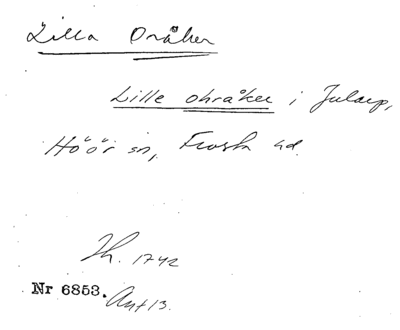 Lilla Oråker
Lille ohråker i Jularp,
Höör sn, Frosta hd.
Lh. 1742
Nr 6853. Ant 13.